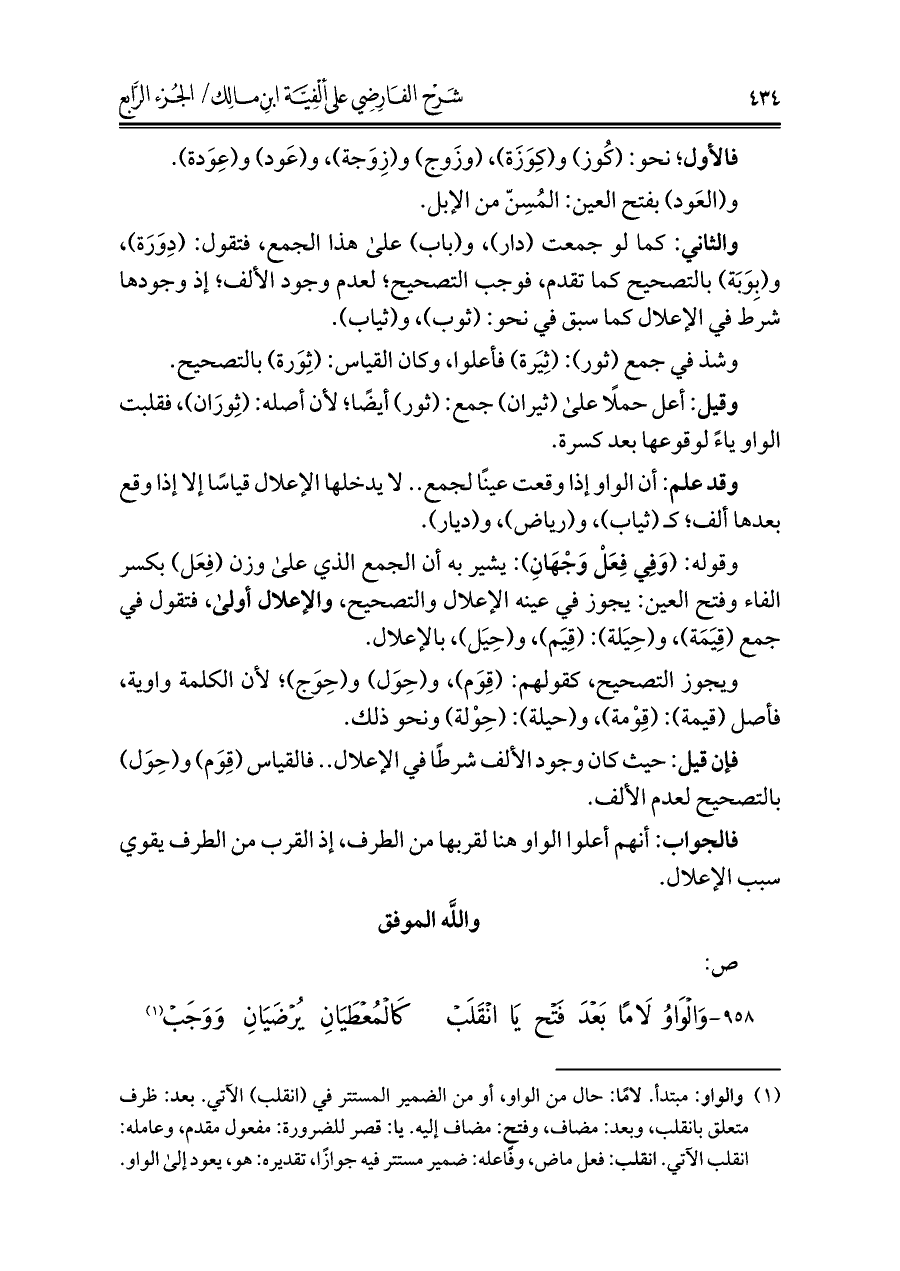 ٤٣٤ شَرْح الفَارِضِي عَلى ألْفِيَّة ابنِ مَالِك/ الجُزء الرَّابع
فالأول؛ نحو: (كُوز) و(كِوَزَة)، (وزَوج) و(زِوَجة)، و(عَود) و(عِوَدة).
و(العَود) بفتح العين: المُسِنّ من الإبل.
والثاني: كما لو جمعت (دار)، و(باب) علىٰ هذا الجمع، فتقول: (دِوَرَة)،
و(بِوَبَة) بالتصحيح كما تقدم، فوجب التصحيح؛ لعدم وجود الألف؛ إذ وجودها
شرط في الإعلال كما سبق في نحو: (ثوب)، و(ثياب).
وشذ في جمع (ثور): (ثِيَرة) فأعلوا، وكان القياس: (ثِوَرة) بالتصحيح.
وقيل: أعل حملًا علىٰ (ثيران) جمع: (ثور) أيضًا؛ لأن أصله: (ثِورَان)، فقلبت
الواو ياءً لوقوعها بعد كسرة.
وقد علم: أن الواو إذا وقعت عينًا لجمع.. لا يدخلها الإعلال قياسًا إلا إذا وقع
بعدها ألف؛ كـ (ثياب)، و(رياض)، و(ديار).
وقوله: (وَفِي فِعَلْ وَجْهَانِ): يشير به أن الجمع الذي علىٰ وزن (فِعَل) بكسر
الفاء وفتح العين: يجوز في عينه الإعلال والتصحيح، والإعلال أولىٰ، فتقول في
جمع (قِيَمَة)، و(حِيَلة): (قِيَم)، و(حِيَل)، بالإعلال.
ويجوز التصحيح، كقولهم: (قِوَم)، و(حِوَل) و(حِوَج)؛ لأن الكلمة واوية،
فأصل (قيمة): (قِوْمة)، و(حيلة): (حِوْلة) ونحو ذلك.
فإن قيل: حيث كان وجود الألف شرطًا في الإعلال.. فالقياس (قِوَم) و(حِوَل)
بالتصحيح لعدم الألف.
فالجواب: أنهم أعلوا الواو هنا لقربها من الطرف، إذ القرب من الطرف يقوي
سبب الإعلال.
واللَّه الموفق
ص:
٩٥٨-وَالْوَاوُ لَامًا بَعْدَ فَتْحِ يَا انْقَلَبْ كَالْمُعْطَيَانِ يُرْضَيَانِ وَوَجَبْ(١)
(١) والواو: مبتدأ. لامًا: حال من الواو، أو من الضمير المستتر في (انقلب) الآتي. بعد: ظرف
متعلق بانقلب، وبعد: مضاف، وفتح: مضاف إليه. يا: قصر للضرورة: مفعول مقدم، وعامله:
انقلب الآتي. انقلب: فعل ماض، وفاعله: ضمير مستتر فيه جوازًا، تقديره: هو، يعود إلىٰ الواو.